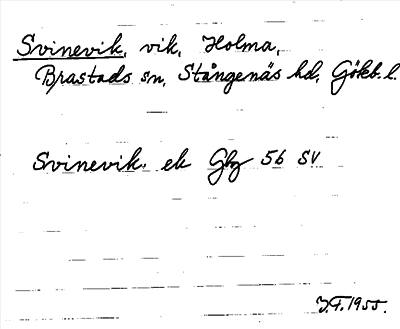 Svinevik, vik, Holma,
Brastads sn, Stångenäs hd, Götb. l.
Svinevik. ek Gbg 5b SV
J.F. 1955.